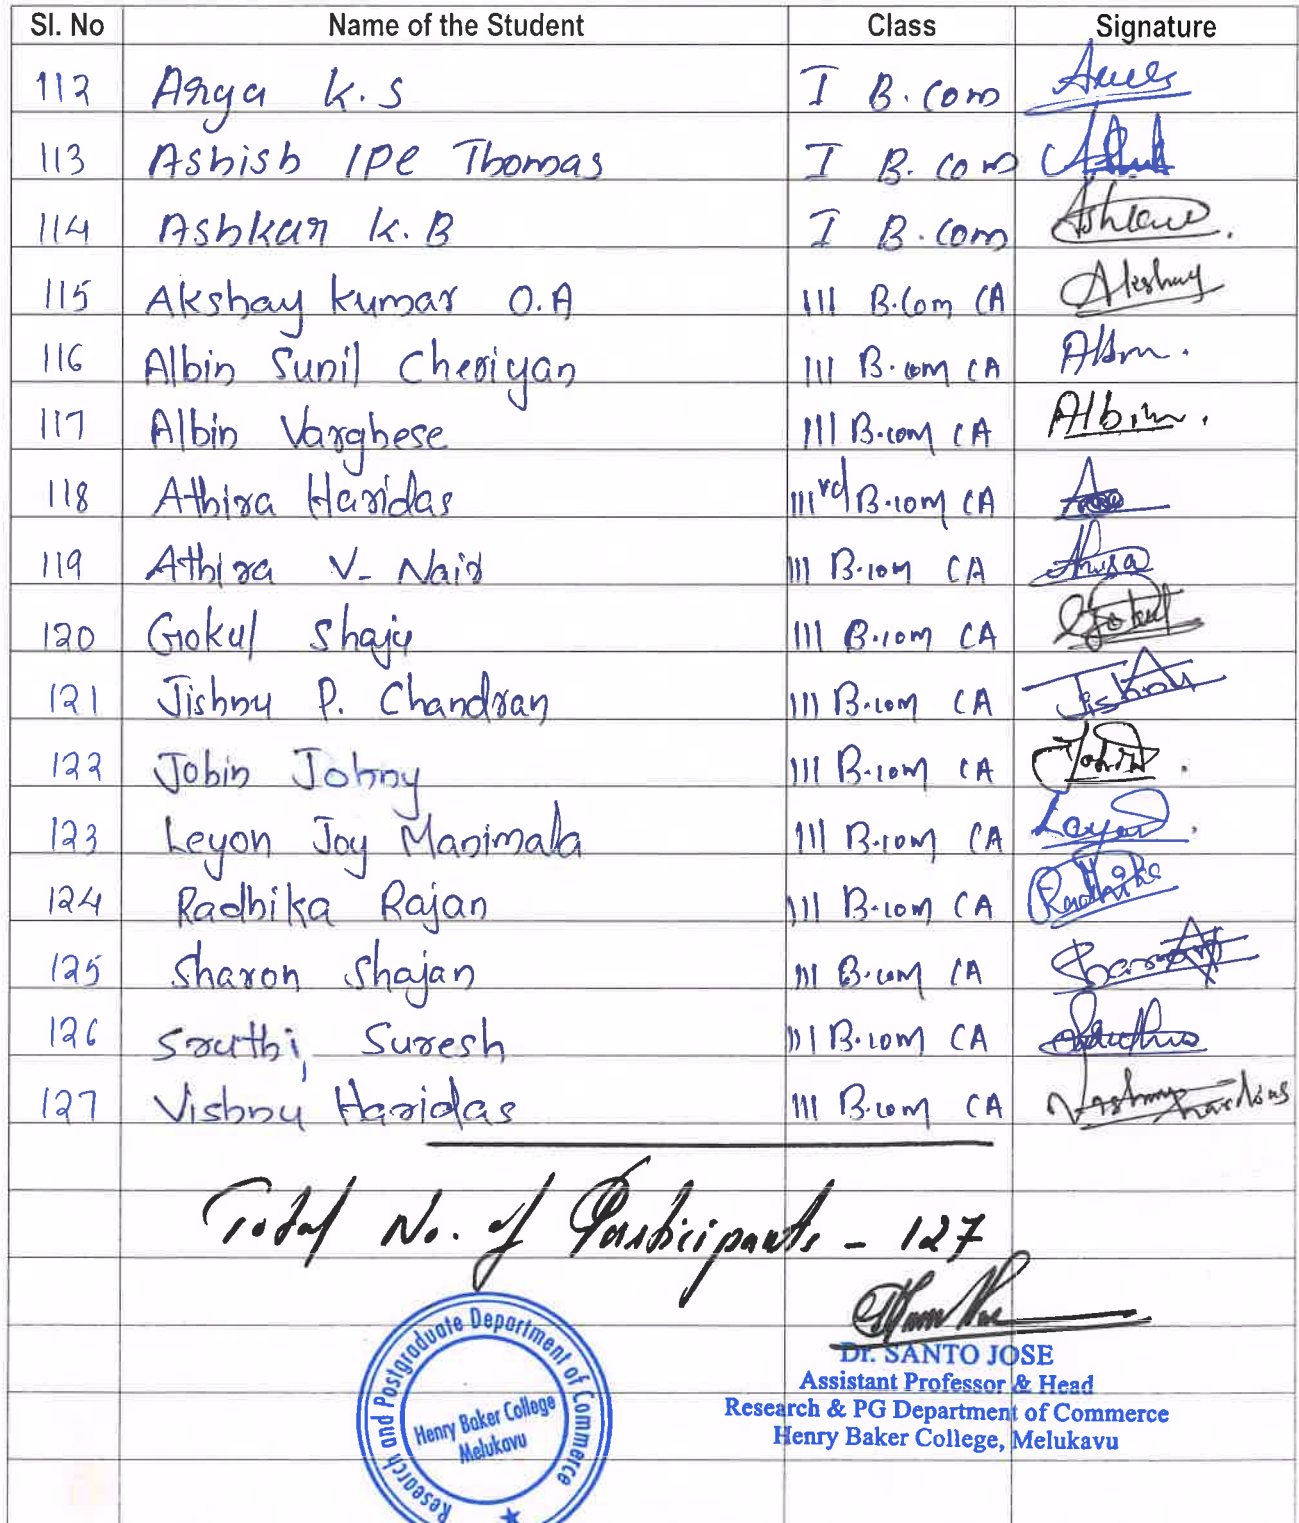 Sl. No Name of the Student Class Signature
112 Arya K.S I B.Com
113 Ashish IPE Thomas I B.Com
114 Ashkar K.B I B.Com
115 Akshay Kumar O.A III B.Com CA Akshay
116 Albin Sunil Cheriyan III B.Com CA Albin.
117 Albin Varghese III B.Com CA Albin.
118 Athira Haridas IIIrd B.Com CA
119 Athira V. Nair III B.Com CA
120 Gokul Shaju III B.Com CA Gokul
121 Jishnu P. Chandran III B.Com CA Jishnu
122 Jobin Johny III B.Com CA Jobin.
123 Leyon Joy Manimala III B.Com CA Leyon.
124 Radhika Rajan III B.Com CA Radhika
125 Sharon Shajan III B.Com CA Sharon
126 Sruthi Suresh III B.Com CA
127 Vishnu Haridas III B.Com CA Vishnu Haridas
Total No. of Participants - 127
Dr. SANTO JOSE
Assistant Professor & Head
Research & PG Department of Commerce
Henry Baker College, Melukavu
Research and Postgraduate Department of Commerce
Henry Baker College
Melukavu